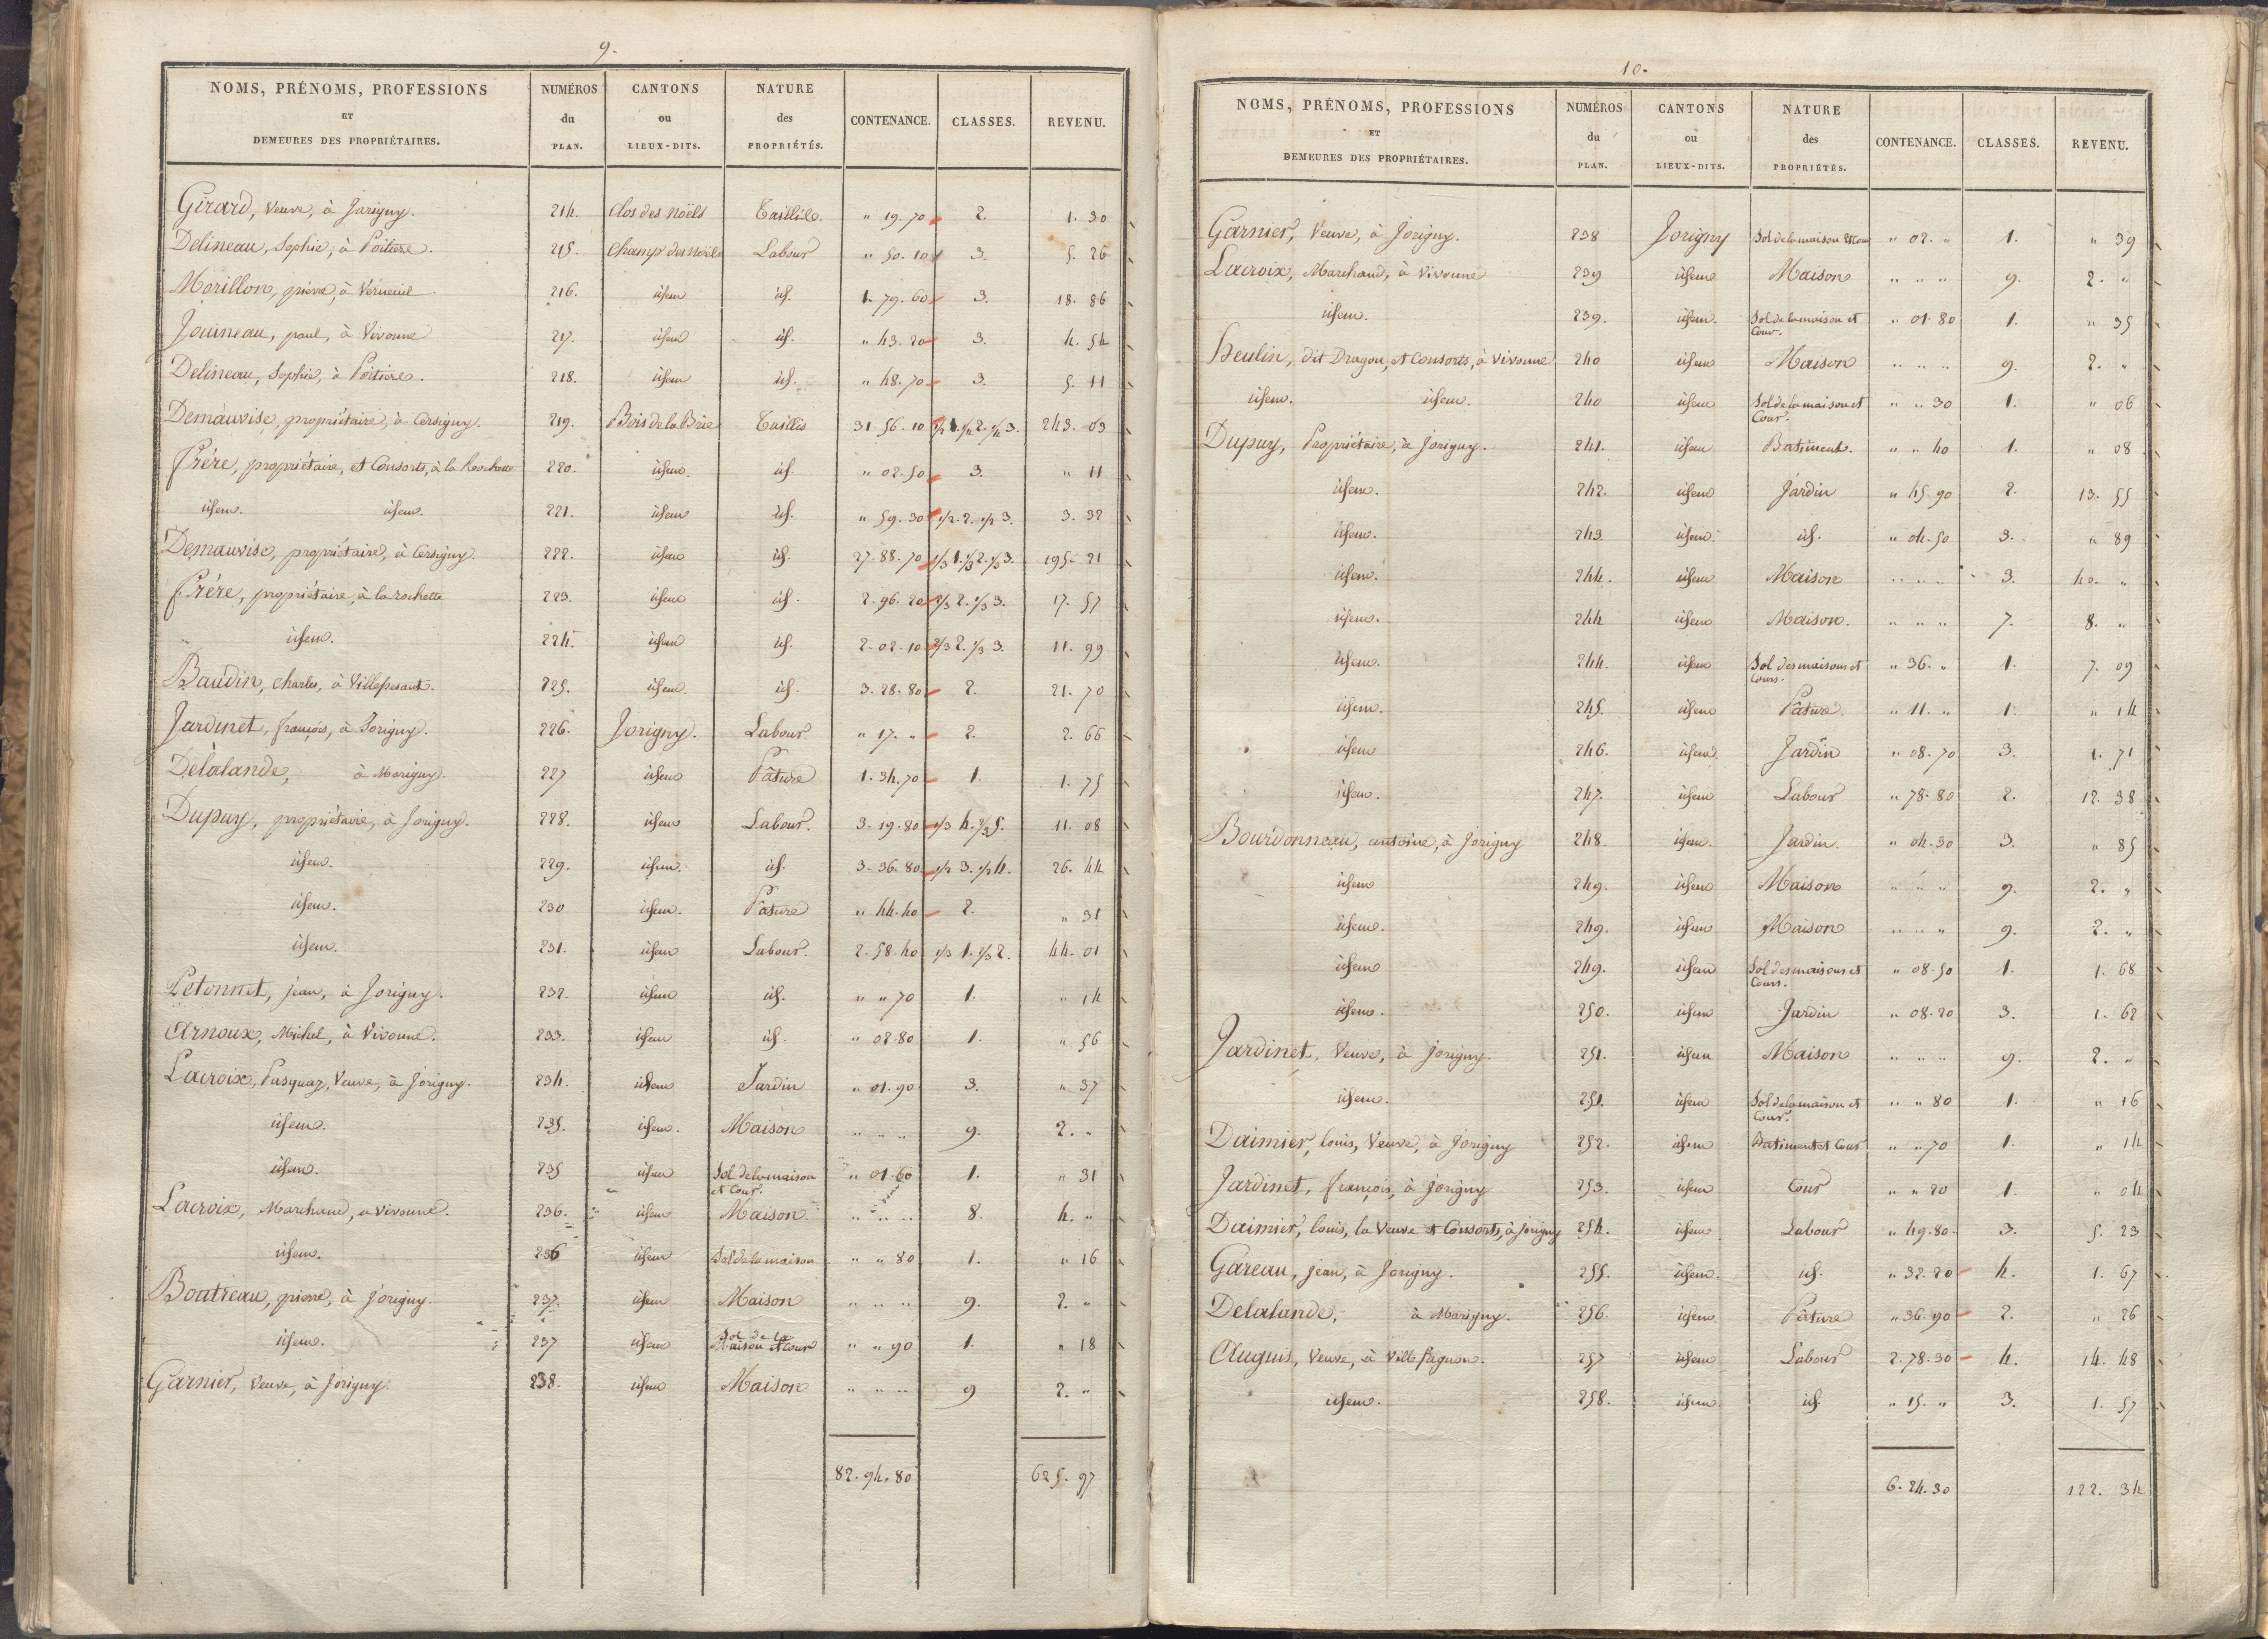 9.
NOMS, PRÉNOMS, PROFESSIONS ET DEMEURES DES PROPRIÉTAIRES. | NUMÉROS du PLAN. | CANTONS ou LIEUX-DITS. | NATURE des PROPRIÉTÉS. | CONTENANCE. | CLASSES. | REVENU.
Girard, Veuve, à Jorigny. 214. Clos des Noëls Taillis. " 19. 70 2. 1. 30
Delineau, Sophie, à Poitiers. 215. Champ des Noëls Labour " 50. 10 3. 5. 26
Morillon, pierre, à Verneuil 216. idem id. 1. 79. 60 3. 18. 86
Jouineau, paul, à Vivonne 217. idem id. " 43. 20 3. 4. 54
Delineau, Sophie, à Poitiers. 218. idem id. " 48. 70 3. 5. 11
Demauvise, propriétaire, à Cersigny. 219. Bois de la Brie Taillis 31. 56. 10 1/4 1. 1/2 2. 1/4 3. 243. 03
Frére, propriétaire, et Consorts, à la Rochette 220. idem. id. " 02. 50 3. " 11
idem. idem. 221. idem id. " 59. 30 1/2. 2. 1/2 3. 3. 32
Demauvise, propriétaire, à Cersigny. 222. idem id. 27. 88. 70 1/3 1. 1/3 2. 1/3 3. 195. 21
Frére, propriétaire, à la rochette 223. idem id. 2. 96. 20 2/3 2. 1/3 3. 17. 57
" idem. 224. idem id. 2. 02. 10 2/3 2. 1/3 3. 11. 99
Baudin, Charles, à Villepesant. 225. idem. id. 3. 28. 80 2. 21. 70
Jardinet, françois, à Jorigny. 226. Jorigny. Labour " 17. " 2. 2. 66
Delalande, à Marigny. 227 idem Pâture 1. 34. 70 1. 1. 75
Dupuy, propriétaire, à Jorigny. 228. idem Labour. 3. 19. 80 1/3 4. 2/3 5. 11. 08
idem. 229. idem. id. 3. 36. 80 1/2 3. 1/2 4. 26. 44
idem. 230 idem. Pâture " 44. 40 2. " 31
idem. 231. idem Labour. 2. 58. 40 1/3 1. 2/3 2. 44. 01
Petonnet, jean, à Jorigny. 232. idem id. " " 70 1. " 14
Arnoux, Michel, à Vivonne. 233. idem id. " 02. 80 1. " 56
Lacroix, Pasquaz, Veuve, à Jorigny. 234. idem Jardin " 01. 90 3. " 37
idem. 235. idem. Maison " " " 9. 2. "
idem. 235 idem Sol de la maison et Cour. " 01. 60 1. " 31
Lacroix, Marchand, à Vivonne. 236. idem Maison. " " " 8. 4. "
idem. 236 idem Sol de la maison " " 80 1. " 16
Boutreau, pierre, à Jorigny. 237. idem Maison " " " 9. 2. "
idem. 237 idem Sol de la Maison et Cour " " 90 1. " 18
Garnier, Veuve, à Jorigny. 238. idem Maison " " " 9 2. "
82. 94. 80 625. 97
10.
NOMS, PRÉNOMS, PROFESSIONS ET DEMEURES DES PROPRIÉTAIRES. | NUMÉROS du PLAN. | CANTONS ou LIEUX-DITS. | NATURE des PROPRIÉTÉS. | CONTENANCE. | CLASSES. | REVENU.
Garnier, Veuve, à Jorigny. 238 Jorigny Sol de la maison et Cour " 02. " 1. " 39
Lacroix, Marchand, à Vivonne 239 idem Maison " " " 9. 2. "
idem. 239. idem. Sol de la maison et Cour. " 01. 80 1. " 35
Heulin, dit Dragon, et Consorts, à Vivonne 240 idem Maison " " " 9. 2. "
idem. idem. 240 idem Sol de la maison et Cour. " " 30 1. " 06
Dupuy, Propriétaire, à Jorigny. 241. idem Batiment. " " 40 1. " 08
idem. 242. idem Jardin " 45. 90 2. 13. 55
idem. 243 idem. id. " 04. 50 3. " 89
idem. 244. idem Maison " " " 3. 40. "
idem. 244 idem Maison. " " " 7. 8. "
idem. 244. idem Sol des maisons et Cours. " 36. " 1. 7. 09
idem. 245. idem Pâture. " 11. " 1. " 14
idem 246. idem Jardin " 08. 70 3. 1. 71
idem. 247. idem Labour " 78. 80 2. 12. 38
Bourdonneau, antoine, à Jorigny 248. idem. Jardin. " 04. 30 3. " 85
idem 249. idem Maison " " " 9. 2. "
idem. 249. idem Maison " " " 9. 2. "
idem 249. idem Sol des maisons et Cours. " 08. 50 1. 1. 68
idem. 250. idem Jardin " 08. 20 3. 1. 62
Jardinet, Veuve, à Jorigny. 251. idem Maison " " " 9. 2. "
idem. 251. idem Sol de la maison et Cour. " " 80 1. " 16
Daimier, louis, Veuve, à Jorigny 252. idem Batiment et Cour " " 70 1. " 14
Jardinet, françois, à Jorigny 253. idem Cour " " 20 1. " 04
Daimier, louis, la Veuve et Consorts, à Jorigny 254. idem Labour " 49. 80. 3. 5. 23
Gareau, jean, à Jorigny. 255. idem. id. " 32. 20 4. 1. 67
Delalande, à Marigny. 256. idem Pâture " 36. 90 2. " 26
Auquis, Veuve, à Villefagnon. 257 idem Labour 2. 78. 30 4. 14. 48
idem. 258. idem id. " 15. " 3. 1. 57
6. 24. 30 122. 34